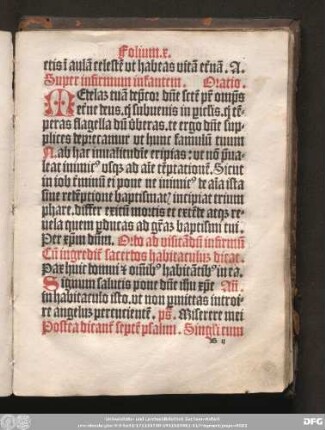 Folium.x.
ctis ī aulā celestē ut habeas vitā etnā. A.
Super infirmum infantem. Oratio.
Medelaz tuā depcor dūe scte pr omps
eterne deus. q subuenis in piclis. q tē
peras flagella dū v̄beras. te ergo dūe sup
plices deprecamur ut hunc famulū tuum
N. ab hac inualitudine eripias: ut nō pua
leat inimic⁹ vsq ad aīe tēptationē. Sicut
in iob t̄minū ei pone ne inimic⁹ de aīa ista
sine redēptione baptismat incipiat trium
phare. differ exitū mortis et extēde
uela quem pducas ad grāz baptismi tui.
Per xpm dūm. Ordo ad visitādū infirmū
Cū ingredit sacerdos habitaculuz dicat.
Pax huic domui & omib⁹ habitātib⁹ in ea.
Signum salutis pone dūe iesu xpe An
in habitaculo isto. ut non pmittas introi
re angeluz percucientē. ps. Miserere mei
Postea dicant septē psalmi. Singli cum